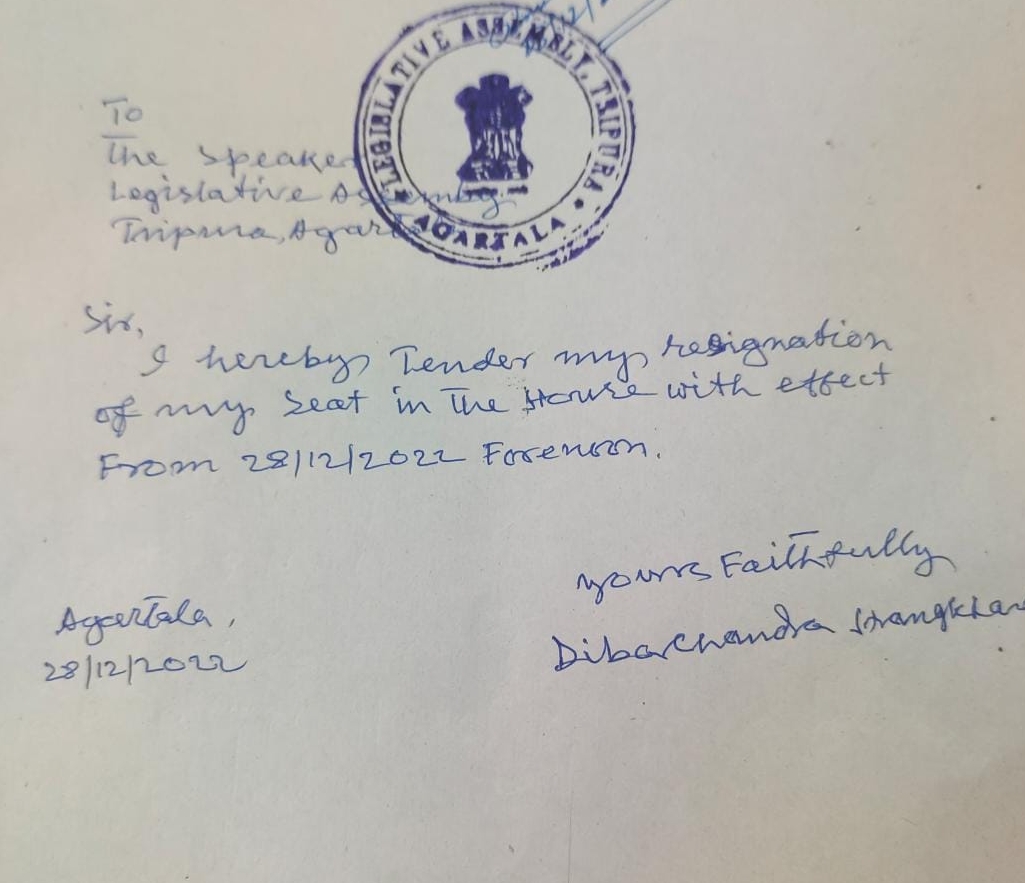 To
The Speaker
Legislative Assembly
Tripura, Agartala
LEGISLATIVE ASSEMBLY, TRIPURA
AGARTALA
Sir,
I hereby Tender my resignation
of my seat in the House with effect
From 28/12/2022 Forenoon.
yours Faithfully
Dibachandra Hrangkhaw
Agartala,
28/12/2022